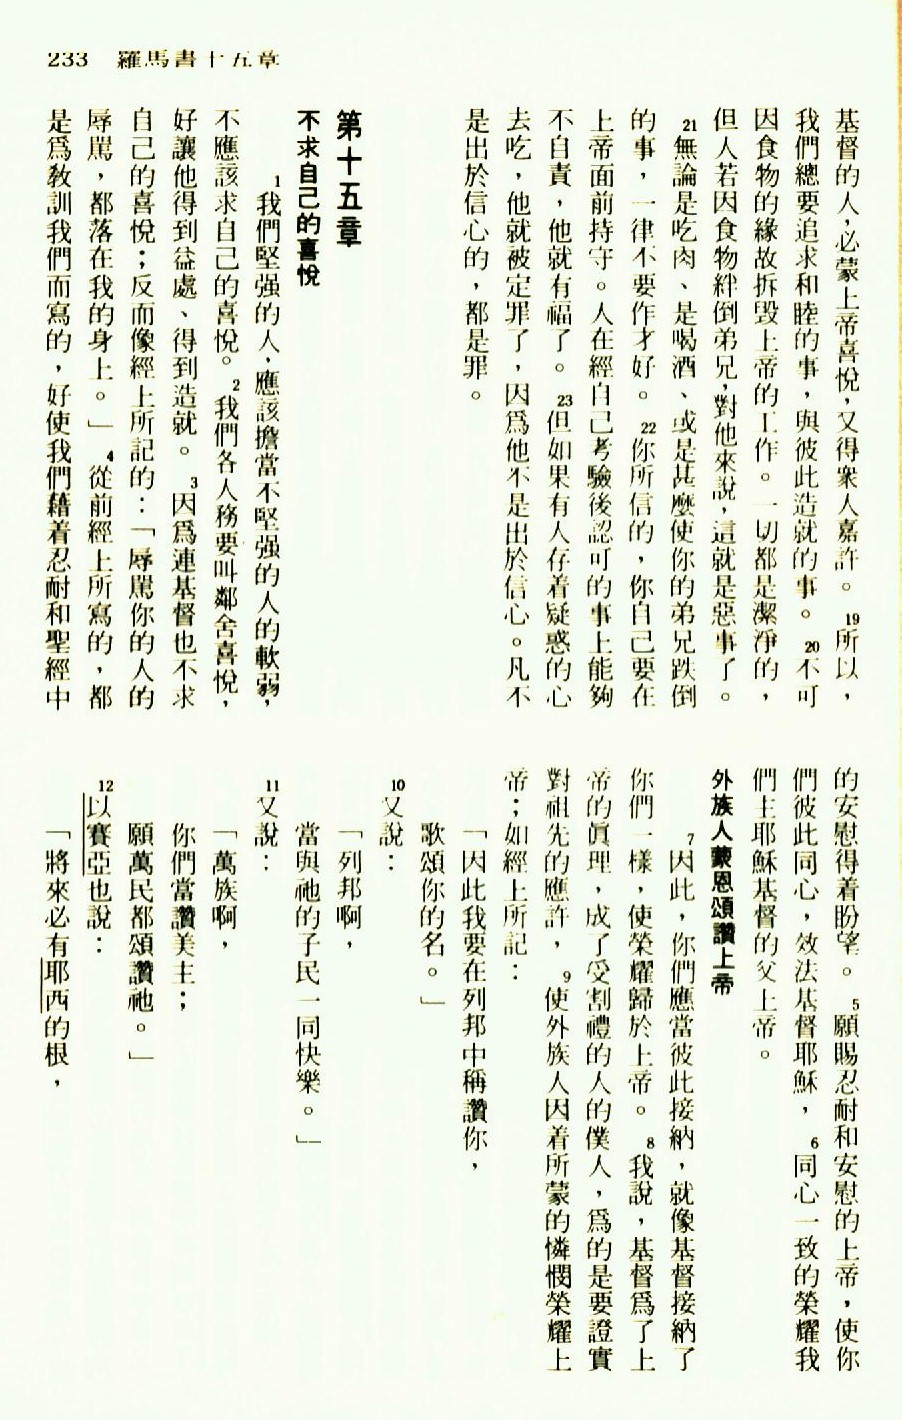 233　羅馬書十五章
基督的人，必蒙上帝喜悅，又得衆人嘉許。 19所以，
我們總要追求和睦的事，與彼此造就的事。 20不可
因食物的緣故拆毀上帝的工作。一切都是潔淨的，
但人若因食物絆倒弟兄，對他來說，這就是惡事了。
21無論是吃肉、是喝酒、或是甚麼使你的弟兄跌倒
的事，一律不要作才好。 22你所信的，你自己要在
上帝面前持守。人在經自己考驗後認可的事上能夠
不自責，他就有福了。 23但如果有人存着疑惑的心
去吃，他就被定罪了，因爲他不是出於信心。凡不
是出於信心的，都是罪。
第十五章
不求自己的喜悅
1我們堅强的人，應該擔當不堅强的人的軟弱，
不應該求自己的喜悅。 2我們各人務要叫鄰舍喜悅，
好讓他得到益處、得到造就。 3因爲連基督也不求
自己的喜悅；反而像經上所記的：「辱駡你的人的
辱駡，都落在我的身上。」 4從前經上所寫的，都
是爲教訓我們而寫的，好使我們藉着忍耐和聖經中
的安慰得着盼望。 5願賜忍耐和安慰的上帝，使你
們彼此同心，效法基督耶穌， 6同心一致的榮耀我
們主耶穌基督的父上帝。
外族人蒙恩頌讚上帝
7因此，你們應當彼此接納，就像基督接納了
你們一樣，使榮耀歸於上帝。 8我說，基督爲了上
帝的眞理，成了受割禮的人的僕人，爲的是要證實
對祖先的應許， 9使外族人因着所蒙的憐憫榮耀上
帝；如經上所記：
「因此我要在列邦中稱讚你，
歌頌你的名。」
10又說：
「列邦啊，
當與祂的子民一同快樂。」
11又說：
「萬族啊，
你們當讚美主；
願萬民都頌讚祂。」
12以賽亞也說：
「將來必有耶西的根，